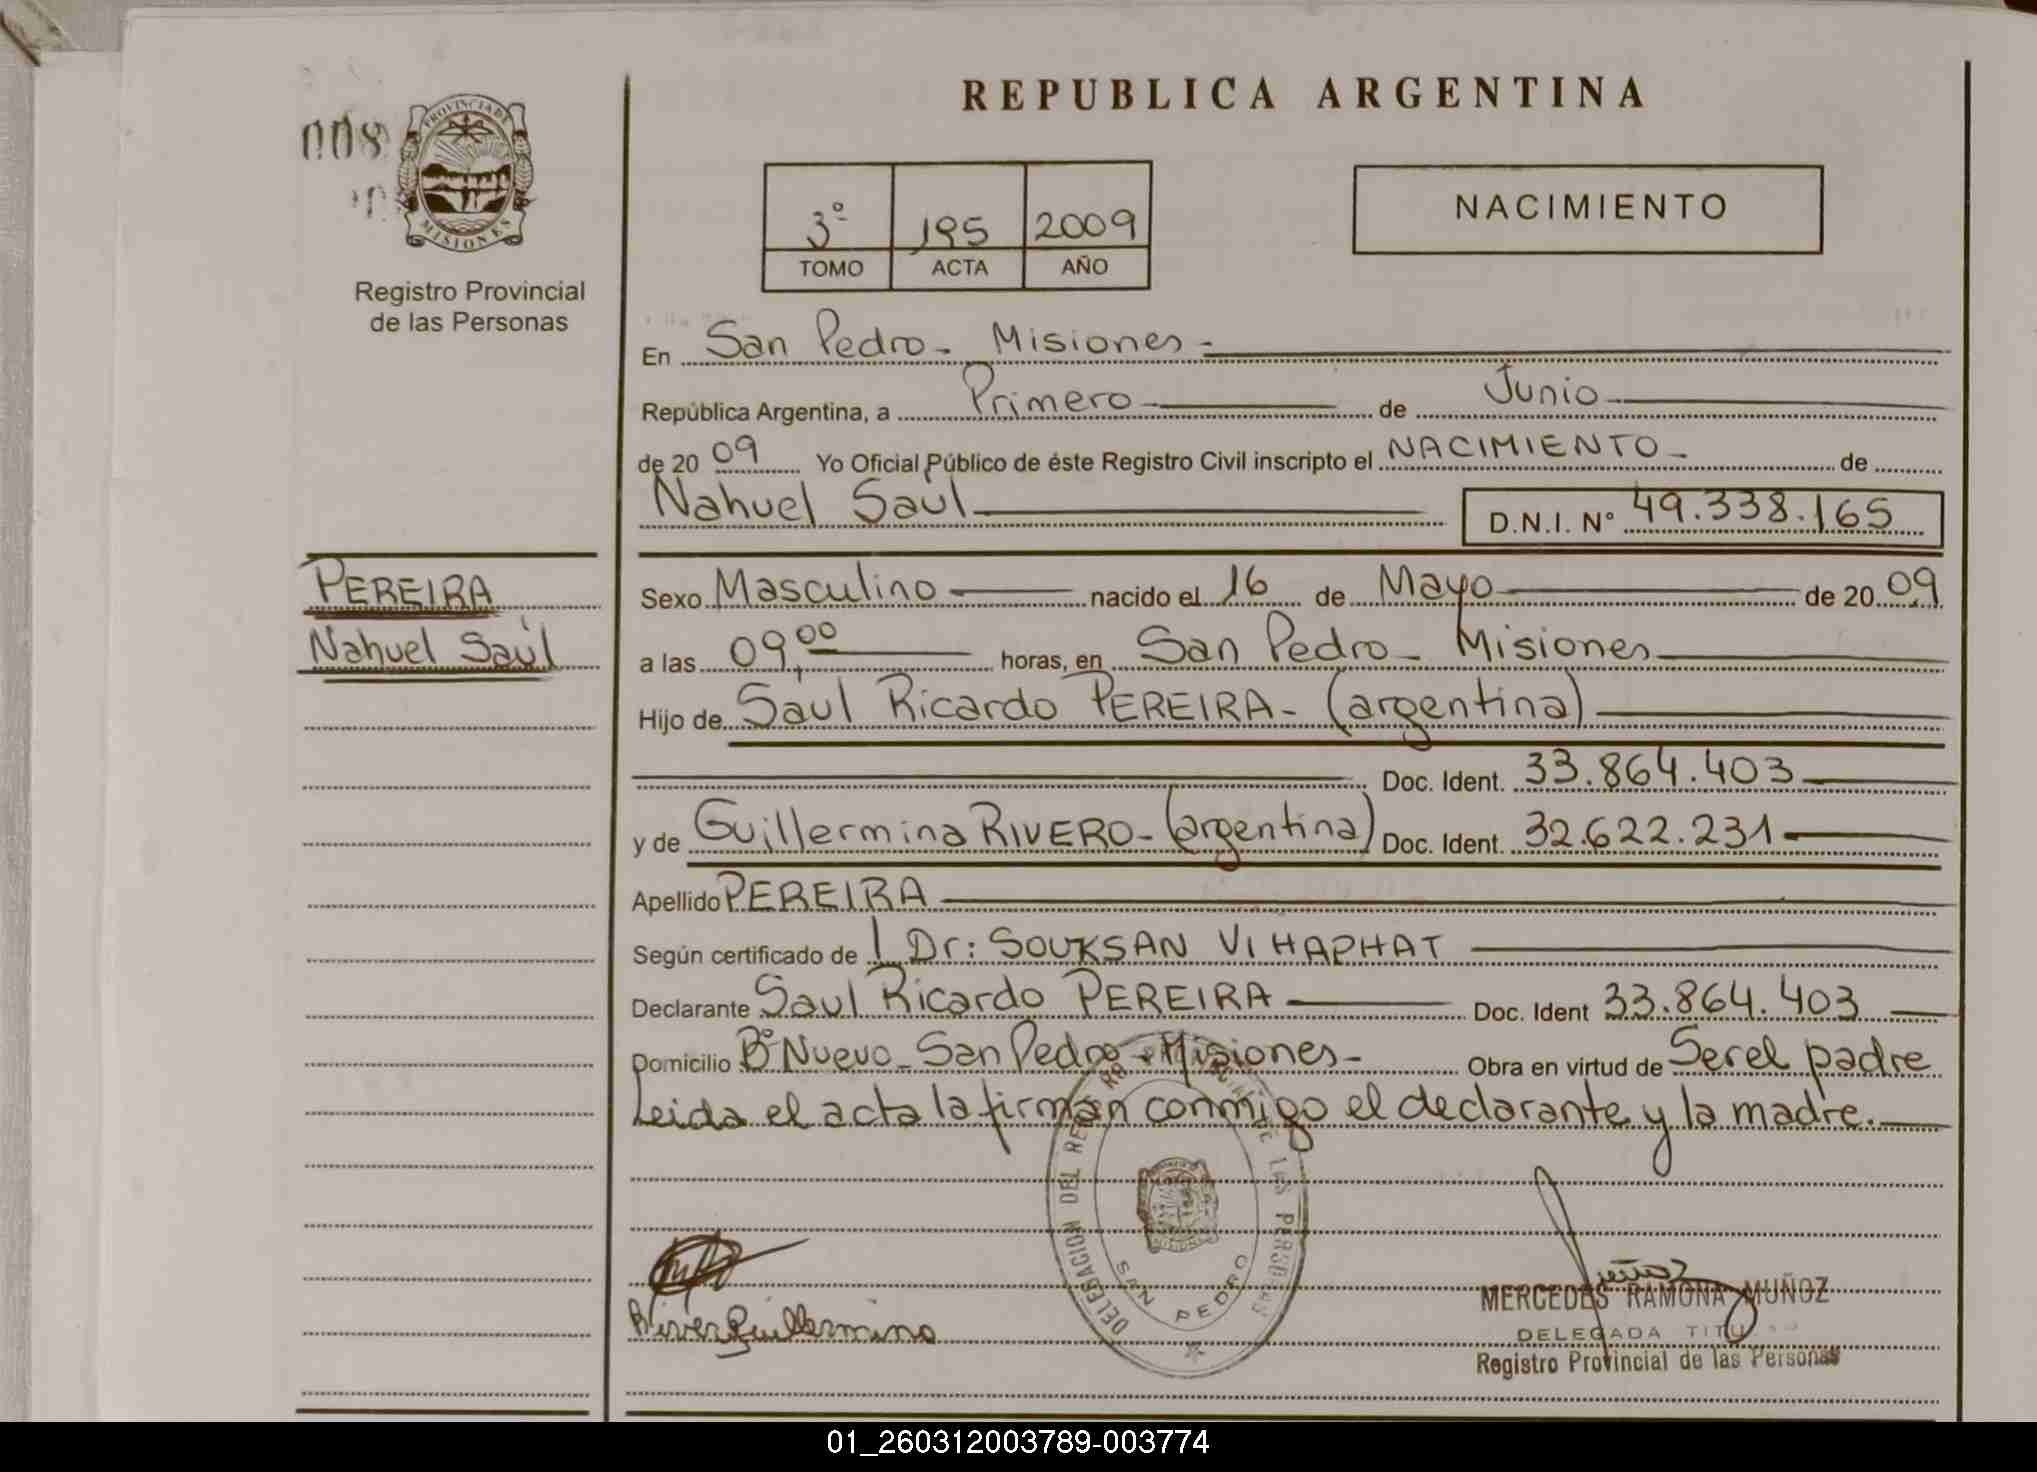 REPUBLICA ARGENTINA
008
PROVINCIA DE
MISIONES
Registro Provincial
de las Personas
3º 195 2009
TOMO ACTA AÑO
NACIMIENTO
En San Pedro - Misiones -
República Argentina, a Primero de Junio
de 20 09 Yo Oficial Público de éste Registro Civil inscripto el NACIMIENTO - de
Nahuel Saúl D.N.I. Nº 49.338.165
PEREIRA
Nahuel Saúl
Sexo Masculino nacido el 16 de Mayo de 20 09
a las 09,00 horas, en San Pedro - Misiones
Hijo de Saul Ricardo PEREIRA - (argentina)
Doc. Ident. 33.864.403
y de Guillermina RIVERO - (argentina) Doc. Ident. 32.622.231
Apellido PEREIRA
Según certificado de Dr: SOUKSAN VIHAPHAT
Declarante Saul Ricardo PEREIRA Doc. Ident 33.864.403
Domicilio Bº Nuevo - San Pedro - Misiones - Obra en virtud de Ser el padre
Leida el acta la firman conmigo el declarante y la madre.
DELEGACION DEL REGISTRO PROVINCIAL DE LAS PERSONAS
SAN PEDRO
Guillermina
MERCEDES RAMONA MUÑOZ
DELEGADA
Registro Provincial de las Personas
01_260312003789-003774